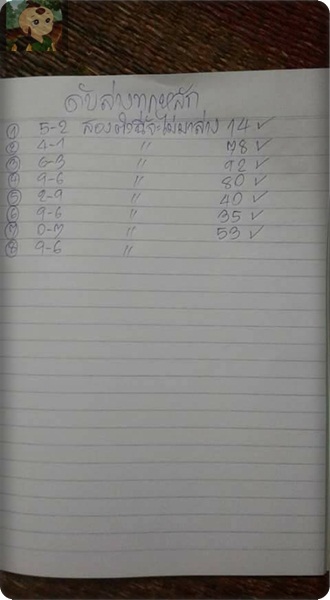 ดับล่างทุกหลัก
① 5-2 สองตัวนี้จะไม่มาล่าง 14 ✓
② 4-1 " 78 ✓
③ 6-3 " 92 ✓
④ 9-6 " 80 ✓
⑤ 2-9 " 40 ✓
⑥ 9-6 " 35 ✓
⑦ 0-7 " 53 ✓
⑧ 9-6 "